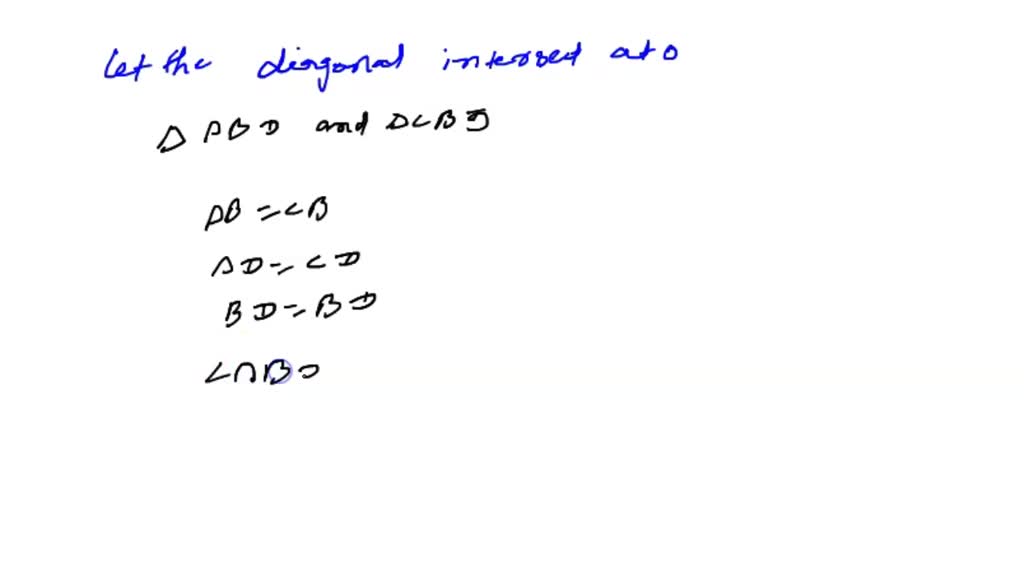 Let the diagonal intersect at O
Δ ABD and Δ CBD
AB = CB
AD = CD
BD = BD
∠ABD